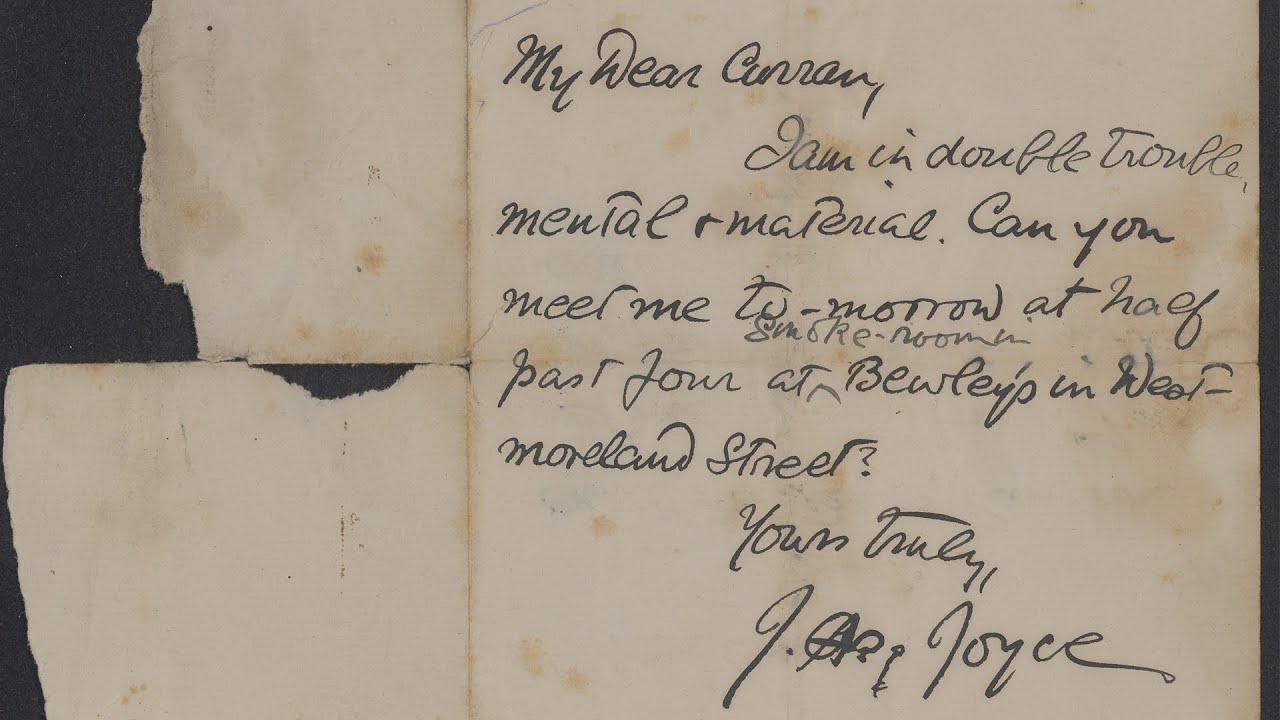 My Dear Curran,
I am in double trouble,
mental + material. Can you
meet me to-morrow at half
smoke-room in
past four at ^ Bewley's in West-
moreland Street?
Yours truly,
J. Joyce